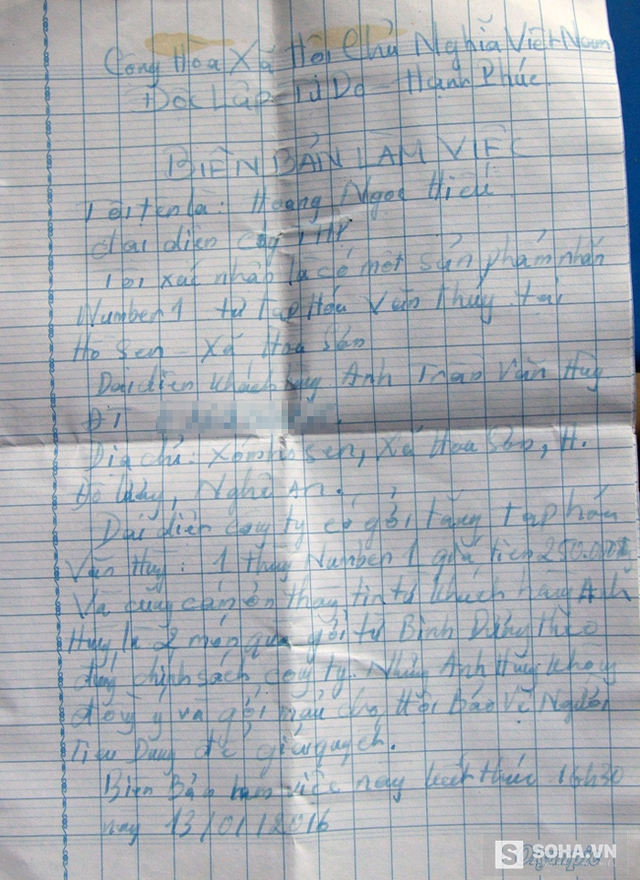 Cộng Hòa Xã Hội Chủ Nghĩa Việt Nam
Độc Lập - Tự Do - Hạnh Phúc
BIÊN BẢN LÀM VIỆC
Tôi tên là: Hoàng Ngọc Hiếu
đại diện Cty THP
Tôi xác nhận là có một sản phẩm nhãn
Number 1 từ Tạp Hóa Văn Thúy tại
Hồ Sen - Xã Hòa Sơn
Đại diện khách hàng Anh Trần Văn Huy
ĐT
Địa chỉ: Xóm hồ sen, Xã Hòa Sơn, H.
Đô Lương, Nghệ An.
Đại diện công ty có gởi tặng tạp hóa
Văn Huy: 1 thùng Number 1 giá tiền 250.000đ
Và cũng cảm ơn thông tin từ khách hàng Anh
Huy là 2 món quà gởi từ Bình Dương theo
đúng chính sách công ty. Nhưng Anh Huy không
đồng ý và gởi mẫu cho Hội Bảo Vệ Người
Tiêu Dùng để giải quyết.
Biên Bản làm việc này kết thúc 16h30
ngày 13/01/2016
SOHA.VN